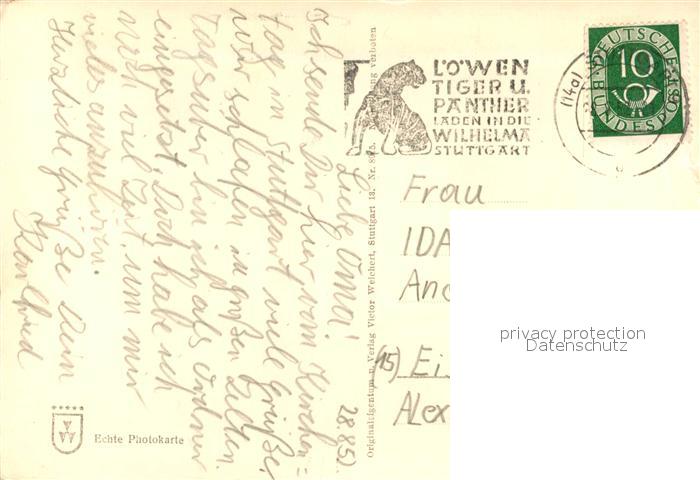 28.8.52
Liebe Oma!
Ich sende Dir hier vom Kirchen=
tag in Stuttgart viele Grüße.
Wir schlafen in großen Zelten.
Tagsüber bin ich als Ordner
eingesetzt. Doch habe ich
noch viel Zeit, um mir
vieles anzuhören.
Herzliche Grüße Dein
Karlfried
Echte Photokarte
Originaleigentum u. Verlag Victor Weichert, Stuttgart 13. Nr. 895. verboten
LÖWEN
TIGER U.
PANTHER
LADEN IN DIE
WILHELMA
STUTTGART
(14a)
DEUTSCHE
BUNDESPOST
10
Frau
IDA
And
(15) Ei
Alex
privacy protection
Datenschutz